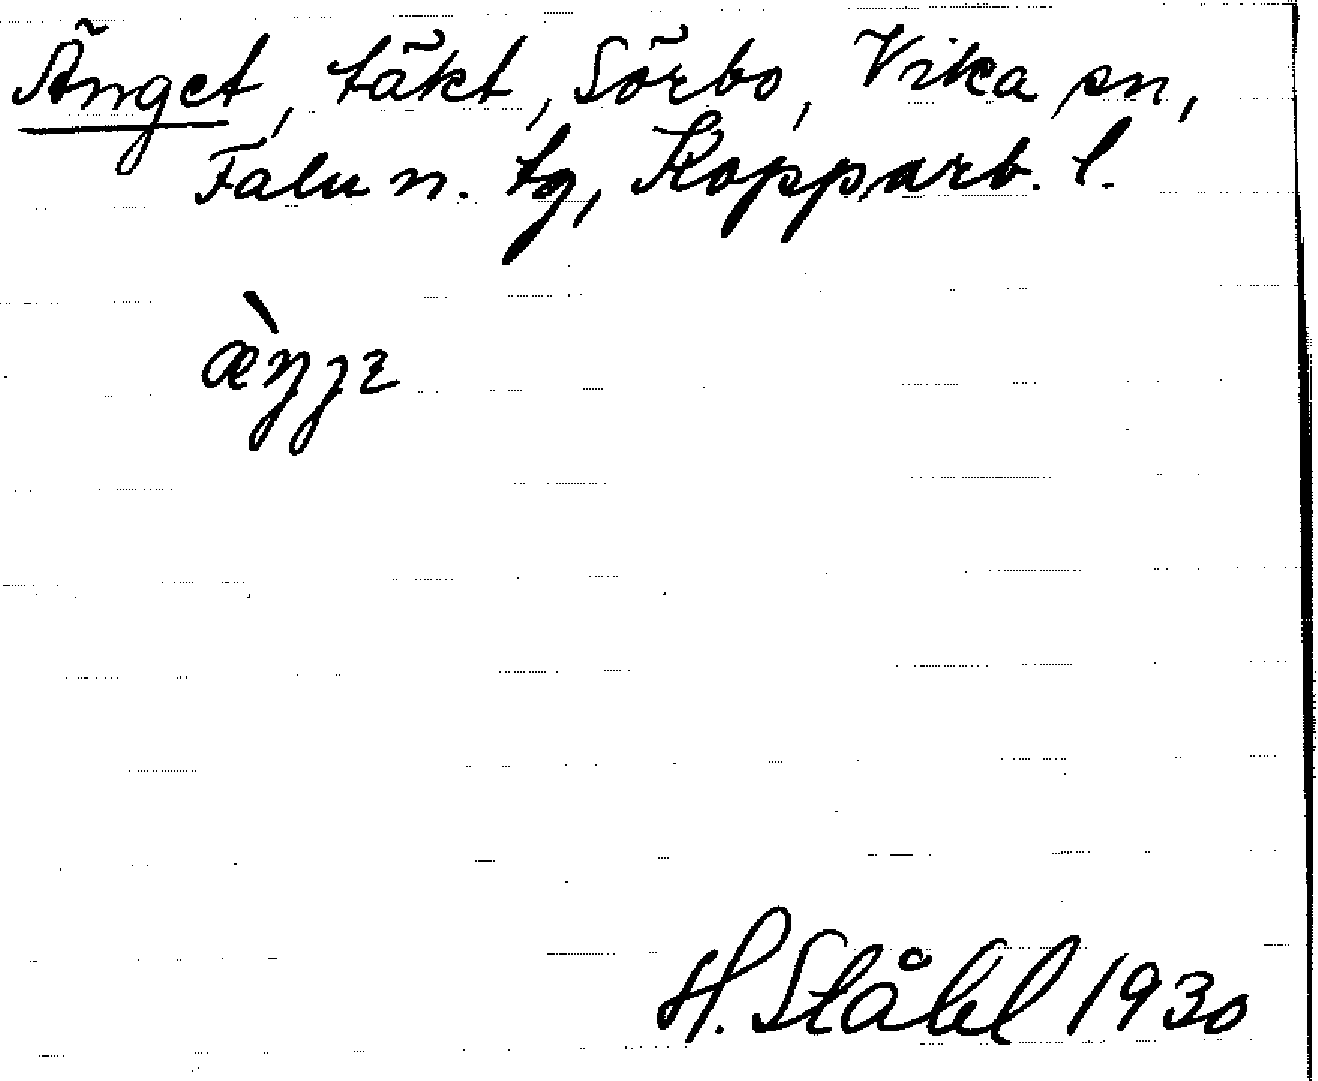 Änget, täkt, Sörbo, Vika sn,
Falu n. tg, Kopparb. l.
æ̀ŋɟɩ
H. Ståhl 1930